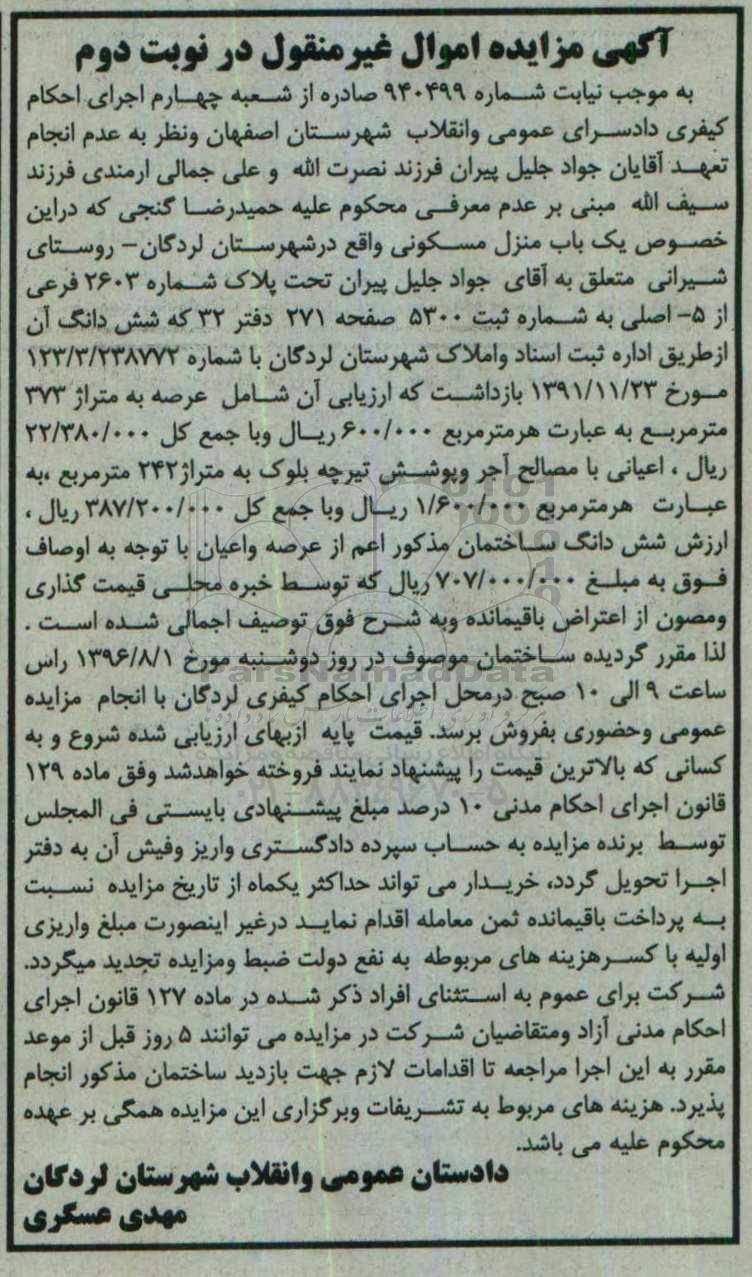 آگهی مزایده اموال غیرمنقول در نوبت دوم
به موجب نیابت شماره ۹۴۰۴۹۹ صادره از شعبه چهارم اجرای احکام
کیفری دادسرای عمومی وانقلاب شهرستان اصفهان ونظر به عدم انجام
تعهد آقایان جواد جلیل پیران فرزند نصرت الله و علی جمالی ارمندی فرزند
سیف الله مبنی بر عدم معرفی محکوم علیه حمیدرضا گنجی که دراین
خصوص یک باب منزل مسکونی واقع درشهرستان لردگان- روستای
شیرانی متعلق به آقای جواد جلیل پیران تحت پلاک شماره ۲۶۰۳ فرعی
از ۵- اصلی به شماره ثبت ۵۳۰۰ صفحه ۲۷۱ دفتر ۳۲ که شش دانگ آن
ازطریق اداره ثبت اسناد واملاک شهرستان لردگان با شماره ۱۲۳/۳/۲۳۸۷۷۲
مورخ ۱۳۹۱/۱۱/۲۳ بازداشت که ارزیابی آن شامل عرصه به متراژ ۳۷۳
مترمربع به عبارت هرمترمربع ۶۰۰/۰۰۰ ریال وبا جمع کل ۲۲/۳۸۰/۰۰۰
ریال ، اعیانی با مصالح آجر وپوشش تیرچه بلوک به متراژ۲۴۲ مترمربع ،به
عبارت هرمترمربع ۱/۶۰۰/۰۰۰ ریال وبا جمع کل ۳۸۷/۲۰۰/۰۰۰ ریال ،
ارزش شش دانگ ساختمان مذکور اعم از عرصه واعیان با توجه به اوصاف
فوق به مبلغ ۷۰۷/۰۰۰/۰۰۰ ریال که توسط خبره محلی قیمت گذاری
ومصون از اعتراض باقیمانده وبه شرح فوق توصیف اجمالی شده است .
لذا مقرر گردیده ساختمان موصوف در روز دوشنبه مورخ ۱۳۹۶/۸/۱ راس
ساعت ۹ الی ۱۰ صبح درمحل اجرای احکام کیفری لردگان با انجام مزایده
عمومی وحضوری بفروش برسد. قیمت پایه ازبهای ارزیابی شده شروع و به
کسانی که بالاترین قیمت را پیشنهاد نمایند فروخته خواهدشد وفق ماده ۱۲۹
قانون اجرای احکام مدنی ۱۰ درصد مبلغ پیشنهادی بایستی فی المجلس
توسط برنده مزایده به حساب سپرده دادگستری واریز وفیش آن به دفتر
اجرا تحویل گردد، خریدار می تواند حداکثر یکماه از تاریخ مزایده نسبت
به پرداخت باقیمانده ثمن معامله اقدام نماید درغیر اینصورت مبلغ واریزی
اولیه با کسرهزینه های مربوطه به نفع دولت ضبط ومزایده تجدید میگردد.
شرکت برای عموم به استثنای افراد ذکر شده در ماده ۱۲۷ قانون اجرای
احکام مدنی آزاد ومتقاضیان شرکت در مزایده می توانند ۵ روز قبل از موعد
مقرر به این اجرا مراجعه تا اقدامات لازم جهت بازدید ساختمان مذکور انجام
پذیرد. هزینه های مربوط به تشریفات وبرگزاری این مزایده همگی بر عهده
محکوم علیه می باشد.
دادستان عمومی وانقلاب شهرستان لردگان
مهدی عسگری
ParsNamadData